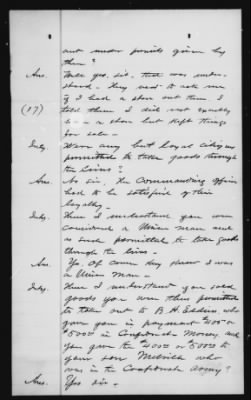 out under permits given by
them?
Ans. Well yes, sir, that was under-
stood. They said to ask me
if I had a store out there I
(17) told them I did not exactly
a store but kept things
for sale.
Inty. Were any but loyal citizens
permitted to take goods through
the lines?
Ans. No sir, the Commanding officer
had to be satisfied of their
loyalty.
Inty. Then I understand you were
considered a Union man and
as such permitted to take goods
through the lines.
Ans. Yes, of course they knew I was
a Union man.
Inty. Then I understand you sold
goods you were thus permitted
to take out to B. H. who
gave you in payment $400 or
$500 in Confederate Money, and
you gave the $400 or $500 to
your son who
was in the Confederate Army?
Ans. Yes sir.